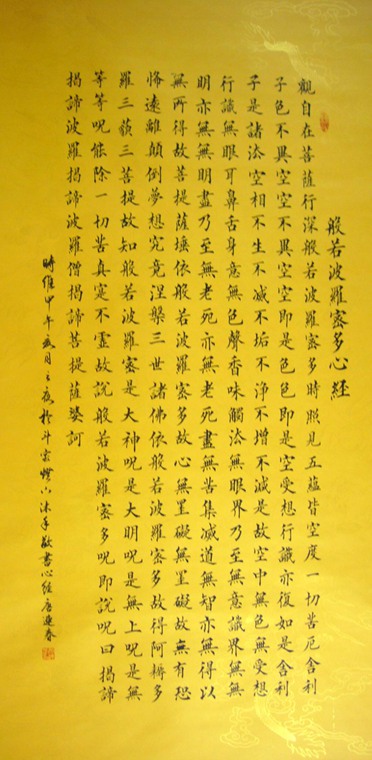 般若波羅蜜多心經
觀自在菩薩行深般若波羅蜜多時照見五蘊皆空度一切苦厄舍利
子色不異空空不異空空即是色色即是空受想行識亦復如是舍利
子是諸法空相不生不滅不垢不淨不增不減是故空中無色無受想
行識無眼耳鼻舌身意無色聲香味觸法無眼界乃至無意識界無無
明亦無無明盡乃至無老死亦無老死盡無苦集滅道無智亦無得以
無所得故菩提薩埵依般若波羅蜜多故心無罣礙無罣礙故無有恐
怖遠離顛倒夢想究竟涅槃三世諸佛依般若波羅蜜多故得阿耨多
羅三藐三菩提故知般若波羅蜜是大神呪是大明呪是無上呪是無
等等呪能除一切苦真實不虛故說般若波羅蜜多呪即說呪曰揭諦
揭諦波羅揭諦波羅僧揭諦菩提薩婆訶
時維甲午月之夜於斗室燈下沐手敬書心經唐迎春